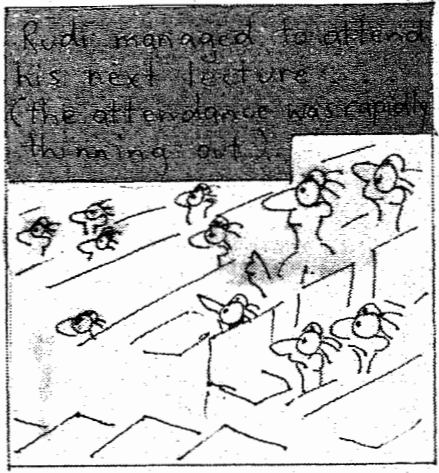 Rudi managed to attend
his next lecture ....
(the attendance was rapidly
thinning out)..